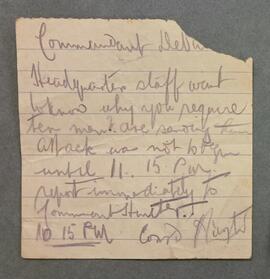 Commandant
Headquarters staff want
to know why you require
ten men. are sending
attack was not to
until 11. 15 P.M.
report immediately to
Commant
10 15 PM